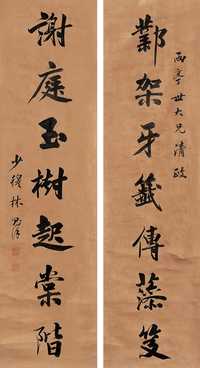 鄴架牙籤傳藻笈
謝庭玉樹起棠階
世大兄清政
少穆林則徐